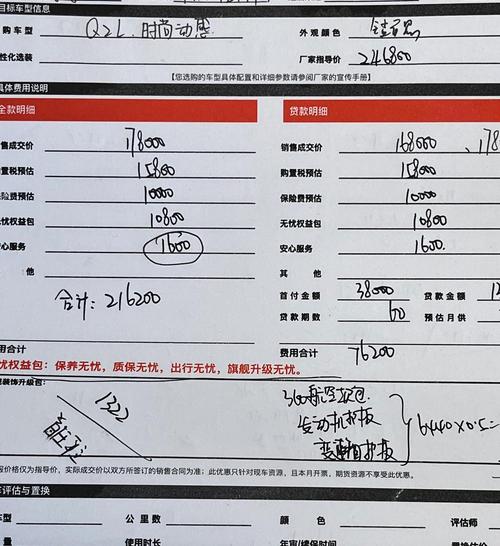 目标车型信息
购车型 Q2L 时尚动感 外观颜色
性化选装 厂家指导价 246800
【您选购的车型具体配置和详细参数请参阅厂家的宣传手册】
具体费用说明
全款明细 贷款明细
售成交价 178000 销售成交价 168000、178
置税预估 15800 购置税预估 15800
险费预估 10000 保险费预估 10000
忧权益包 10800 无忧权益包 10800
心服务 1600 安心服务 1600.
他 其 他
合计:216200 首付金额 38000 贷款金额 12
贷款期数 60 预估月供
费用合计 费用合计 76200
忧权益包:保养无忧,质保无忧,出行无忧,旗舰升级无忧。
装饰升级包:
1322 360航空软包
发动机护板 6440×0.5=
变速箱护板
报价格仅为指导价,实际成交价以双方所签订的销售合同为准;此优惠只针对现车资源,且本月开票,期货资源不享受此优惠。
车评估与置换
型 公里数 颜 色 评估师
量 使用时长 年审/续保时间 置换估价